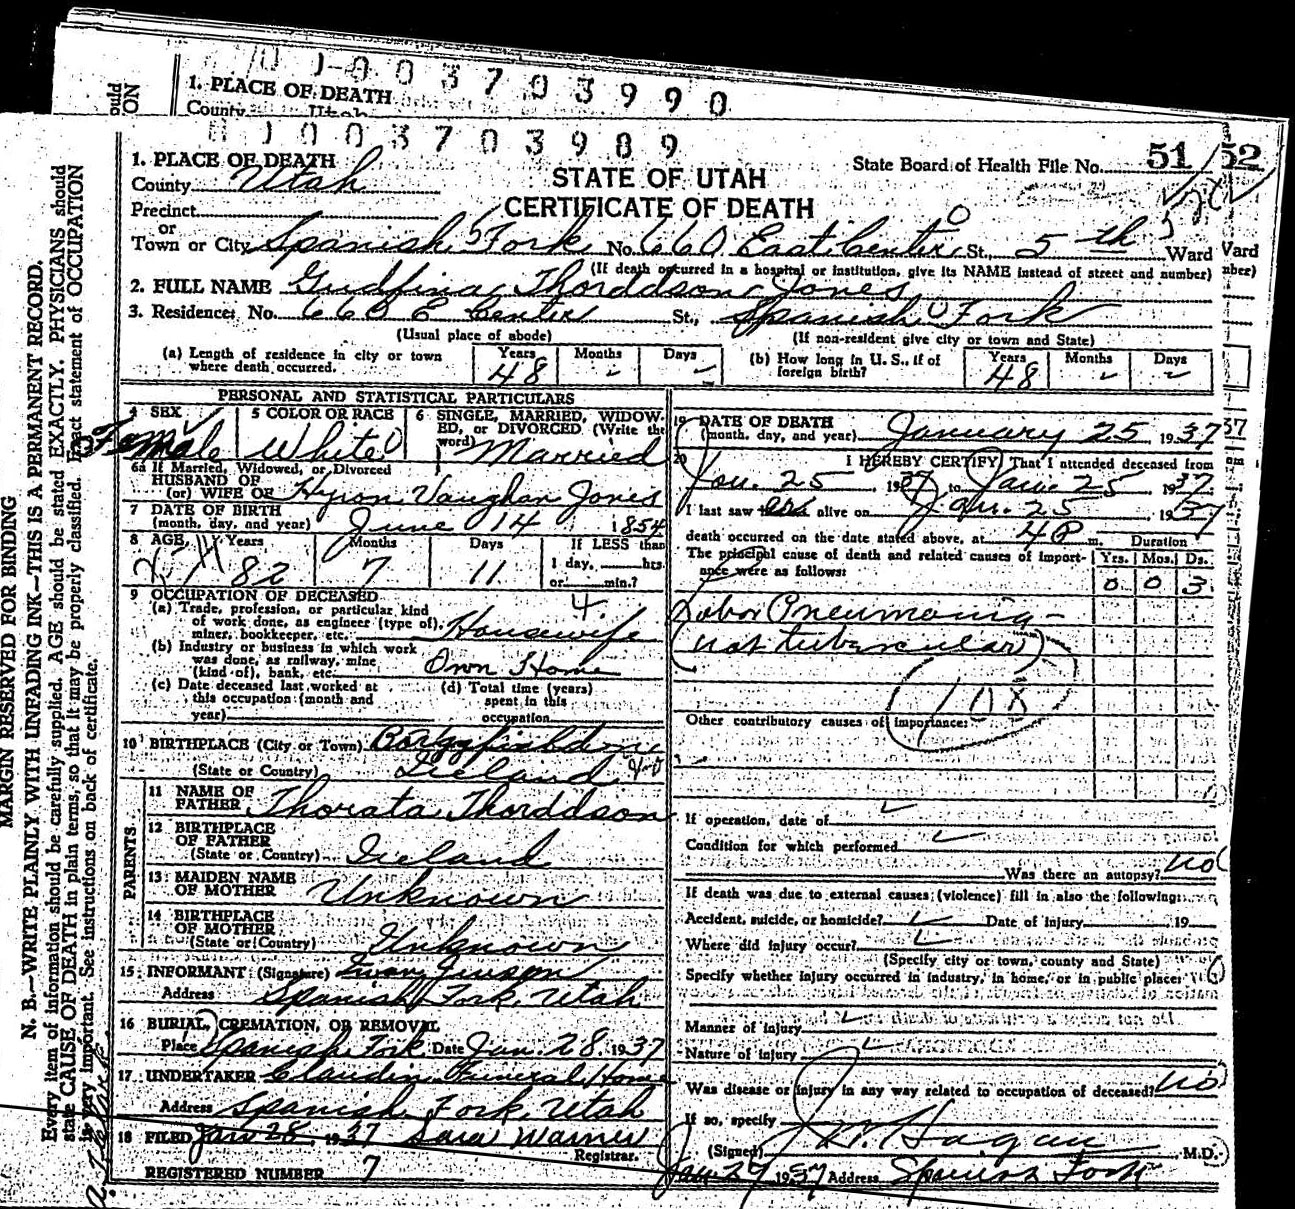 1. PLACE OF DEATH
County Utah
0 0 3 7 0 3 9 9 0
0 0 3 7 0 3 9 8 9
1. PLACE OF DEATH
County Utah
STATE OF UTAH
CERTIFICATE OF DEATH
State Board of Health File No. 51
52
Precinct
or
Town or City Spanish Fork No. 660 East Center St., 5th Ward
Ward
(If death occurred in a hospital or institution, give its NAME instead of street and number)
2. FULL NAME Gudfina Thorddson Jones
3. Residence: No. 660 E Center St., Spanish Fork
(Usual place of abode) (If non-resident give city or town and State)
(a) Length of residence in city or town where death occurred. Years 48 Months - Days -
(b) How long in U. S., if of foreign birth? Years 48 Months - Days -
PERSONAL AND STATISTICAL PARTICULARS
4 SEX Female
5 COLOR OR RACE White
6 SINGLE, MARRIED, WIDOWED, or DIVORCED (Write the word) Married
6a If Married, Widowed, or Divorced
HUSBAND OF
(or) WIFE OF Hyron Vaughan Jones
7 DATE OF BIRTH
(month, day, and year) June 14 1854
8 AGE, Years 82 Months 7 Days 11
If LESS than
1 day, hrs.
or min.?
9 OCCUPATION OF DECEASED
(a) Trade, profession, or particular kind
of work done, as engineer (type of),
miner, bookkeeper, etc. Housewife
(b) Industry or business in which work
was done, as railway, mine
(kind of), bank, etc. Own Home
(c) Date deceased last worked at
this occupation (month and
year)
(d) Total time (years)
spent in this
occupation
10 BIRTHPLACE (City or Town)
(State or Country) Iceland
PARENTS
11 NAME OF
FATHER Thorata Thorddson
12 BIRTHPLACE
OF FATHER
(State or Country) Iceland
13 MAIDEN NAME
OF MOTHER Unknown
14 BIRTHPLACE
OF MOTHER
(State or Country) Unknown
15 INFORMANT (Signature)
Address Spanish Fork, Utah
16 BURIAL, CREMATION, OR REMOVAL
Place Spanish Fork Date Jan. 28, 1937
17 UNDERTAKER Claudin Funeral Home
Address Spanish Fork, Utah
18 FILED Jan 28, 1937 Sara Warner
Registrar.
REGISTERED NUMBER 7
19 DATE OF DEATH
(month, day, and year) January 25, 1937
20 I HEREBY CERTIFY, That I attended deceased from
Jan. 25 1937 to Jan. 25 1937
I last saw her alive on Jan. 25, 1937
death occurred on the date stated above, at 4 P m.
The principal cause of death and related causes of importance were as follows:
Duration
Yrs. Mos. Ds.
0 0 3
Lobor Pneumonia -
(not tubercular)
108
Other contributory causes of importance:
If operation, date of
Condition for which performed
Was there an autopsy? no
If death was due to external causes (violence) fill in also the following:
Accident, suicide, or homicide? Date of injury 19
Where did injury occur?
(Specify city or town, county and State)
Specify whether injury occurred in industry, in home, or in public place:
Manner of injury
Nature of injury
Was disease or injury in any way related to occupation of deceased? no
If so, specify
(Signed) J. W. Hagan M.D.
Jan 27 1937 Address Spanish Fork
MARGIN RESERVED FOR BINDING
N. B.—WRITE PLAINLY WITH UNFADING INK—THIS IS A PERMANENT RECORD.
Every item of information should be carefully supplied. AGE should be stated EXACTLY. PHYSICIANS should
state CAUSE OF DEATH in plain terms, so that it may be properly classified. Exact statement of OCCUPATION
is very important. See instructions on back of certificate.